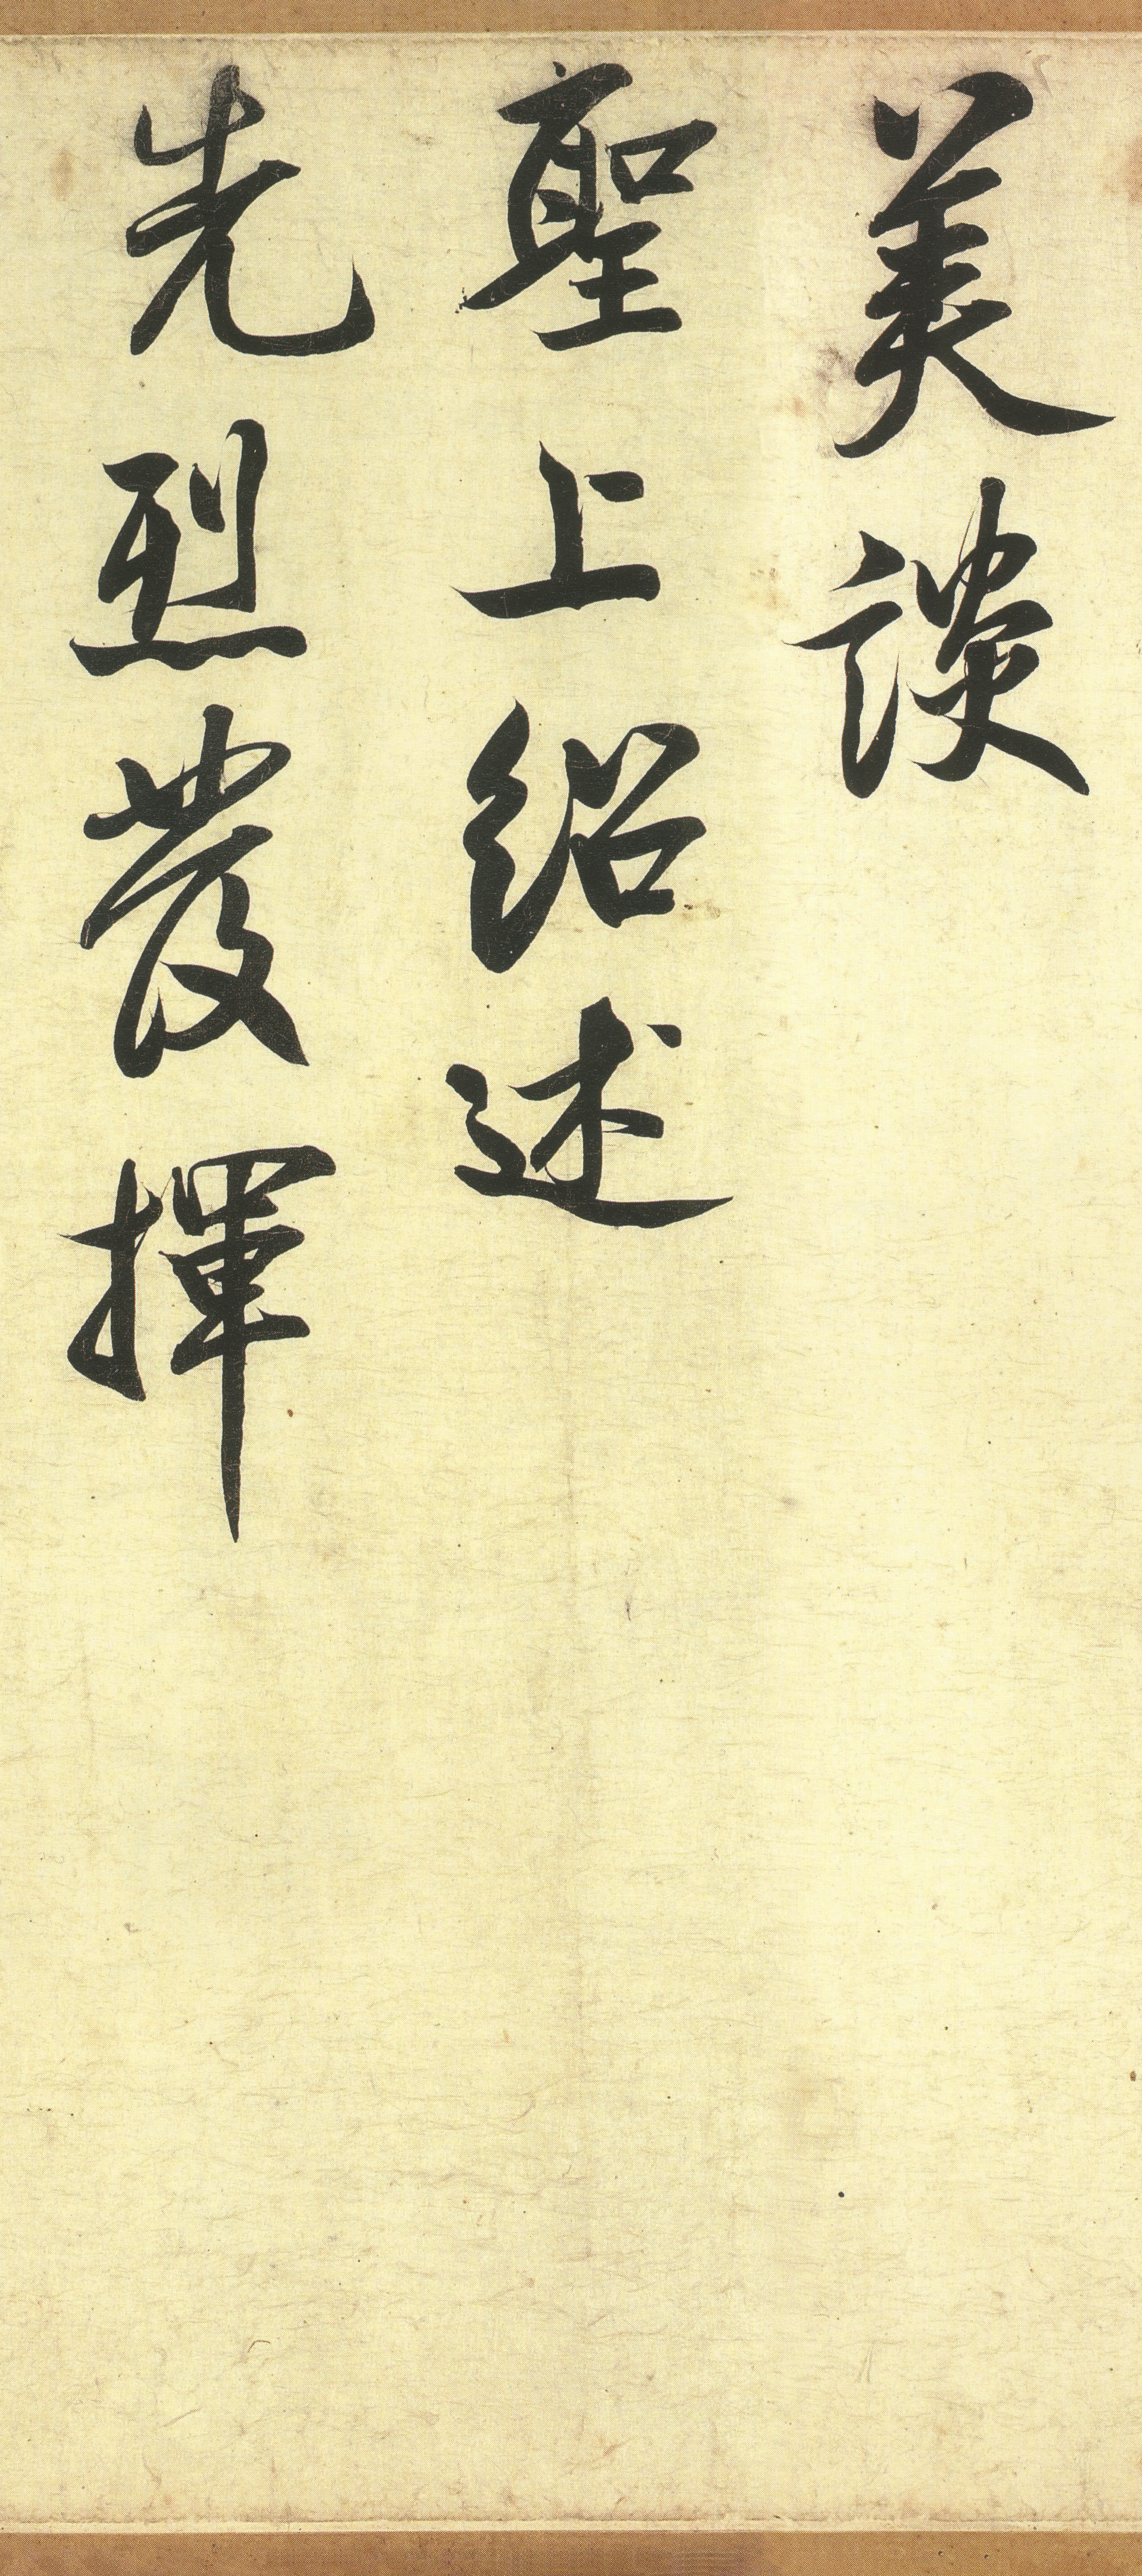 美談
聖上紹述
先烈發揮